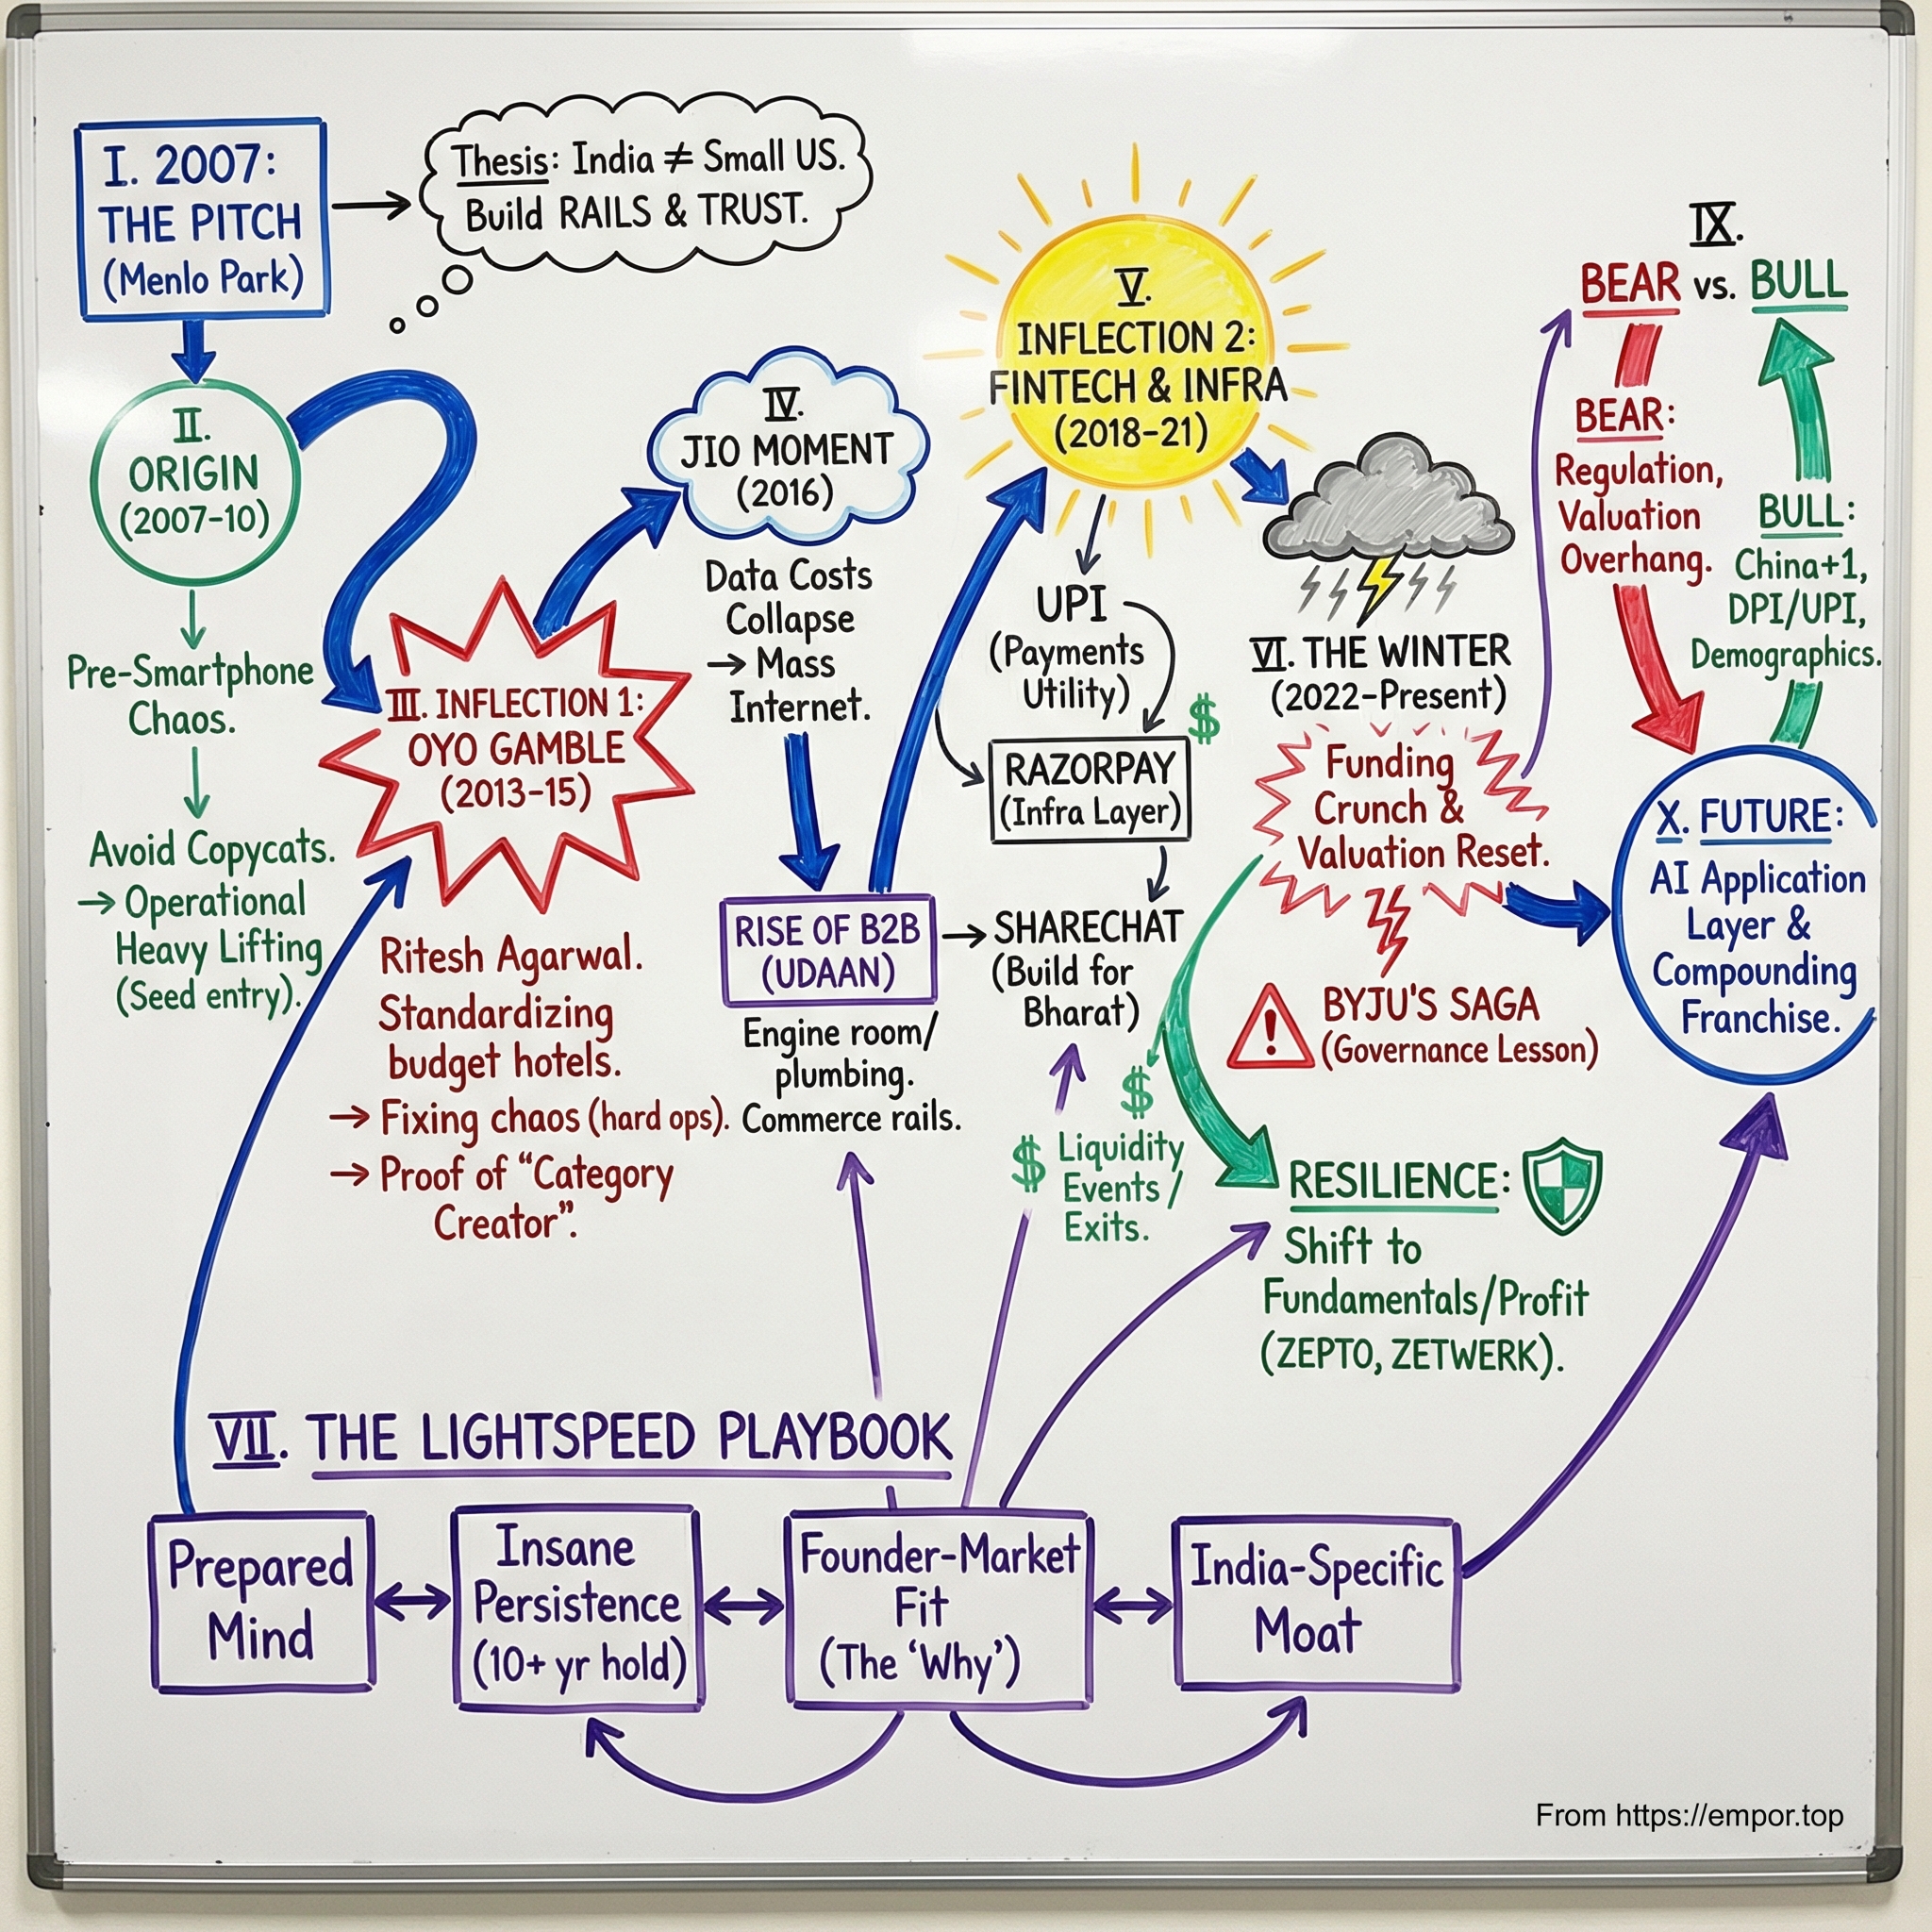 I. 2007:
THE PITCH
(Menlo Park)
Thesis: India ≠ Small US.
Build RAILS & TRUST.
II.
ORIGIN
(2007-10)
Pre-Smartphone
Chaos.
Avoid Copycats.
→ Operational
Heavy Lifting
(Seed entry).
III. INFLECTION 1:
OYO GAMBLE
(2013-15)
Ritesh Agarwal.
Standardizing
budget hotels.
→ Fixing chaos (hard ops).
→ Proof of “Category
Creator”.
IV.
JIO MOMENT
(2016)
Data Costs
Collapse
→ Mass
Internet.
RISE OF B2B
(UDAAN)
Engine room/
plumbing.
Commerce rails.
V.
INFLECTION 2:
FINTECH & INFRA
(2018-21)
UPI
(Payments
Utility)
$
RAZORPAY
(Infra Layer)
SHARECHAT
(Build for
Bharat)
$
$ Liquidity
Events/
Exits.
VI. THE WINTER
(2022-Present)
Funding
Crunch &
Valuation Reset.
!
BYJU'S SAGA
(Governance Lesson)
RESILIENCE:
Shift to
Fundamentals/Profit
(ZEPTO, ZETWERK).
IX.
BEAR vs. BULL
BEAR:
Regulation,
Valuation
Overhang.
BULL:
China+1,
DPI/UPI,
Demographics.
X. FUTURE:
AI Application
Layer &
Compounding
Franchise.
VII. THE LIGHTSPEED PLAYBOOK
Prepared
Mind
Insane
Persistence
(10+ yr hold)
Founder-Market
Fit
(The ‘Why’)
India-Specific
Moat
From https://empor.top